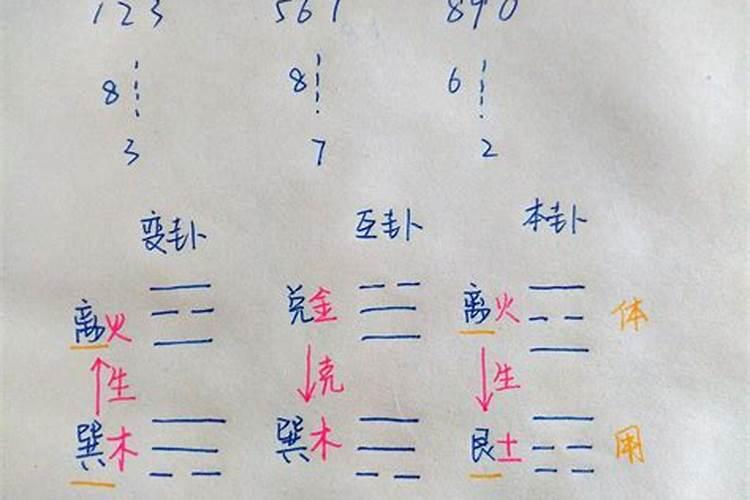 123 567 890
8 8 6
3 7 2
变卦 互卦 本卦
离火 兑金 离火 体
生 克 生
巽木 巽木 艮土 用